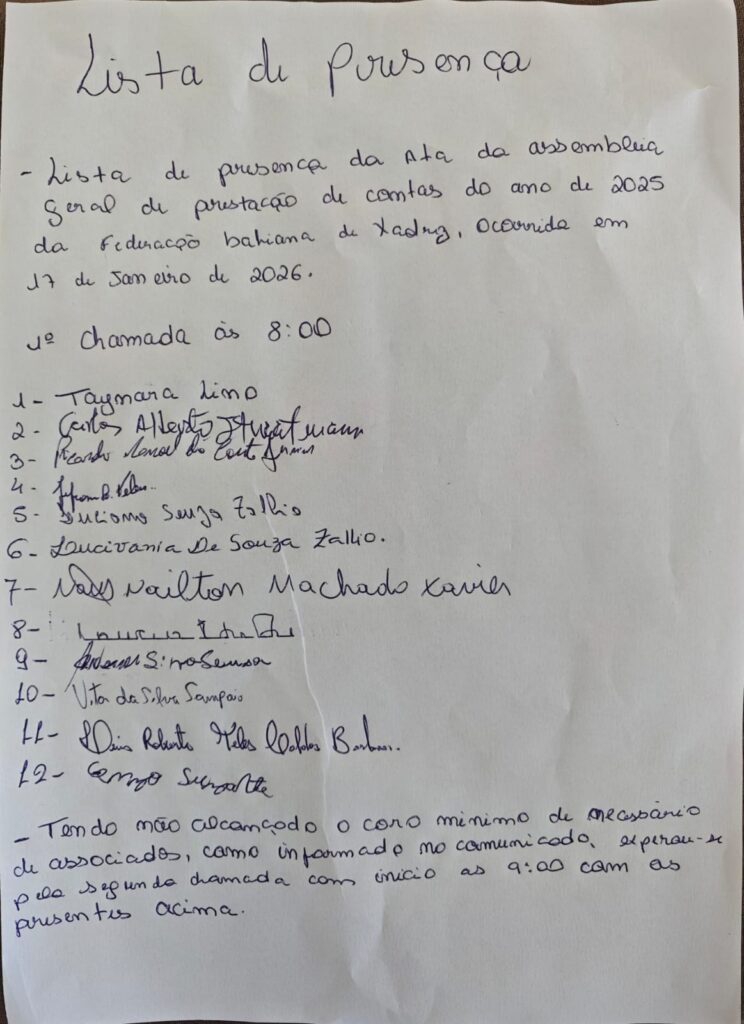 Lista de Presença
- Lista de presença da Ata da assembleia
geral de prestação de contas do ano de 2025
da Federacção bahiana de Xadrez, ocorrida em
17 de Janeiro de 2026.
1º Chamada às 8:00
1- Taynara Limo
2- Carlos Alberto
3- Ricardo
4-
5- Luciano Souza Zallio
6- Lucivania De Souza Zallio.
7- Nailton Machado Xavier
8-
9-
10- Vitor da Silva Sampaio
11- Roberto Barbosa.
12-
- Tendo não alcançado o coro mínimo de necessário
de associados, como informado no comunicado, esperou-se
pela segunda chamada com início as 9:00 com as
presentes acima.